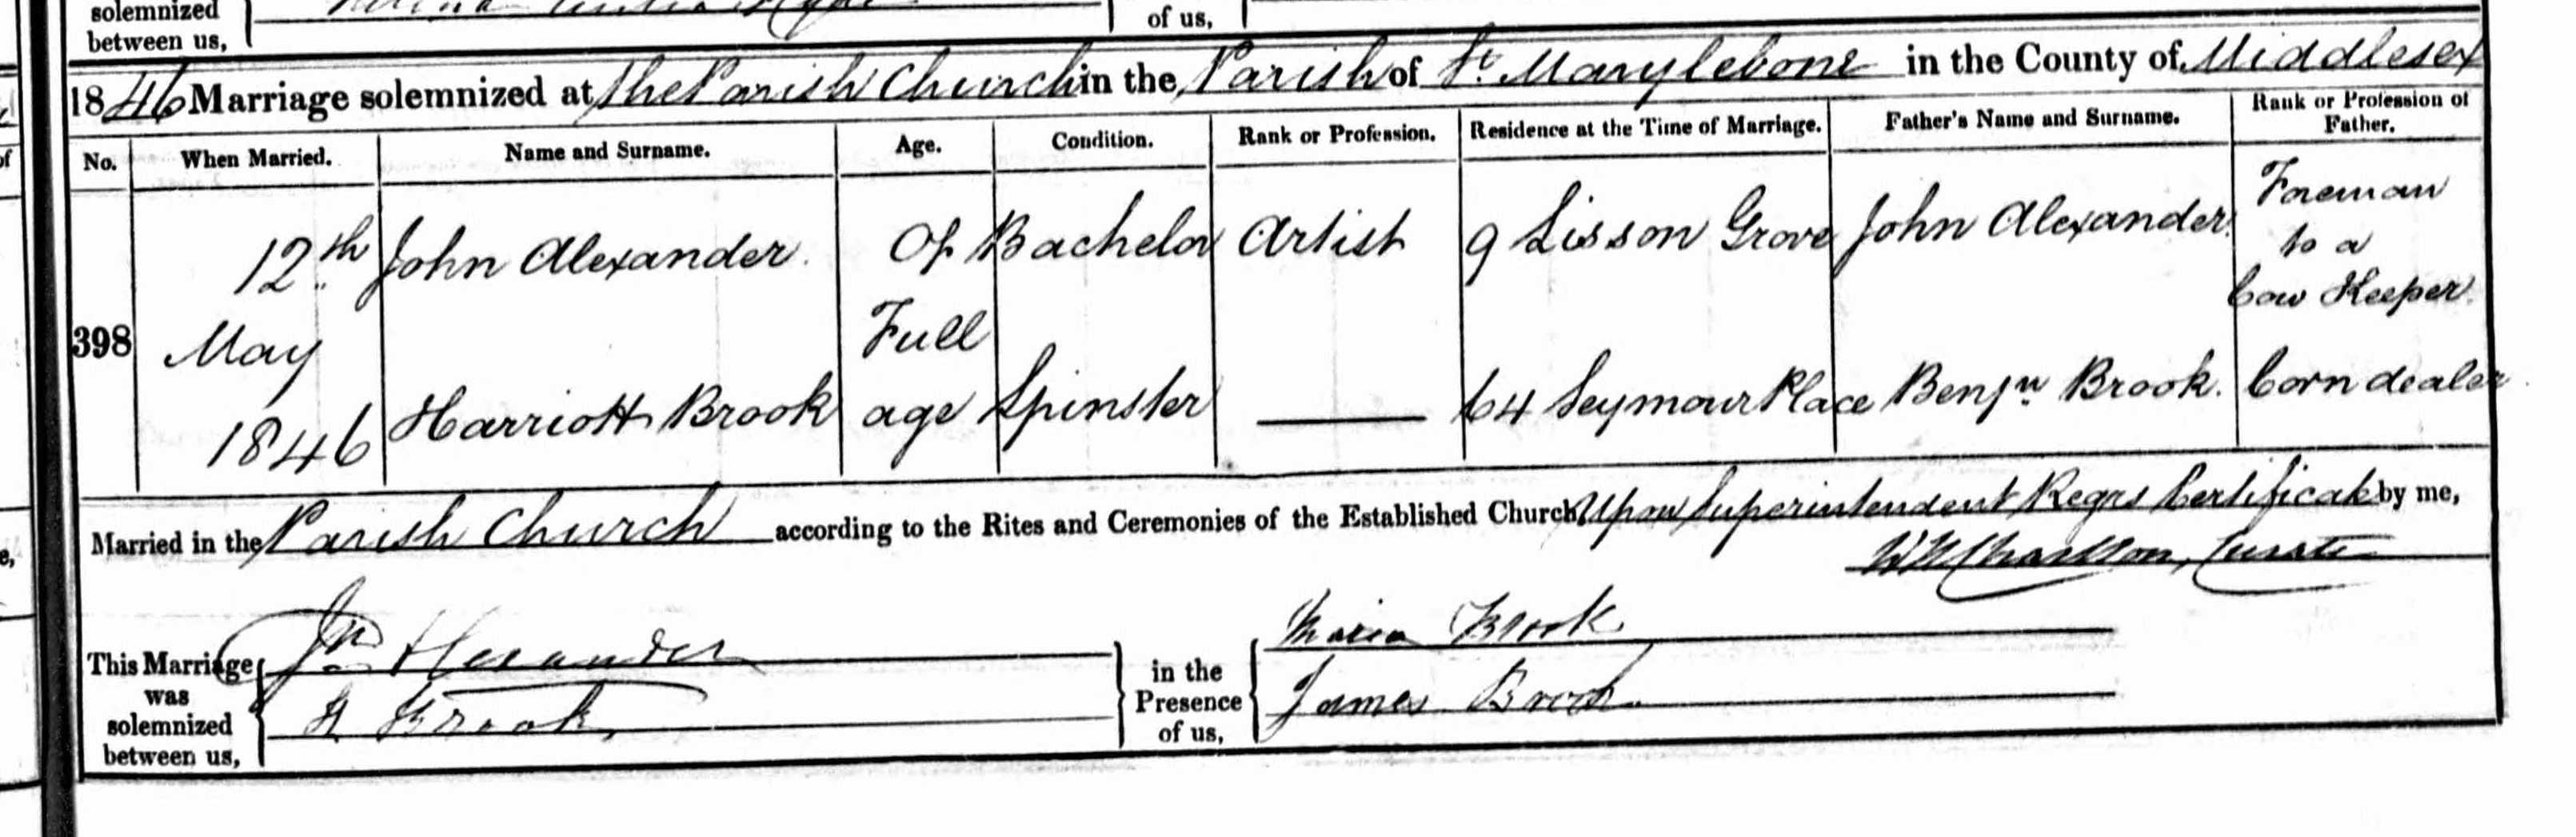 solemnized
between us,
of us,
1846 Marriage solemnized at the Parish Church in the Parish of St. Marylebone in the County of Middlesex
No. When Married. Name and Surname. Age. Condition. Rank or Profession. Residence at the Time of Marriage. Father's Name and Surname. Rank or Profession of Father.
12th John Alexander. Of Bachelor Artist 9 Lisson Grove John Alexander. Foreman
to a
Cow Keeper.
398 May Full
1846 Harriott Brook age Spinster 64 Seymour Place Benjn Brook. Corn dealer
Married in the Parish Church according to the Rites and Ceremonies of the Established Church, Upon Superintendent Regrs Certificate by me,
Charlton, Curate
This Marriage was solemnized between us,
Jn Alexander
H Brook
in the Presence of us,
Maria Brook
James Brook